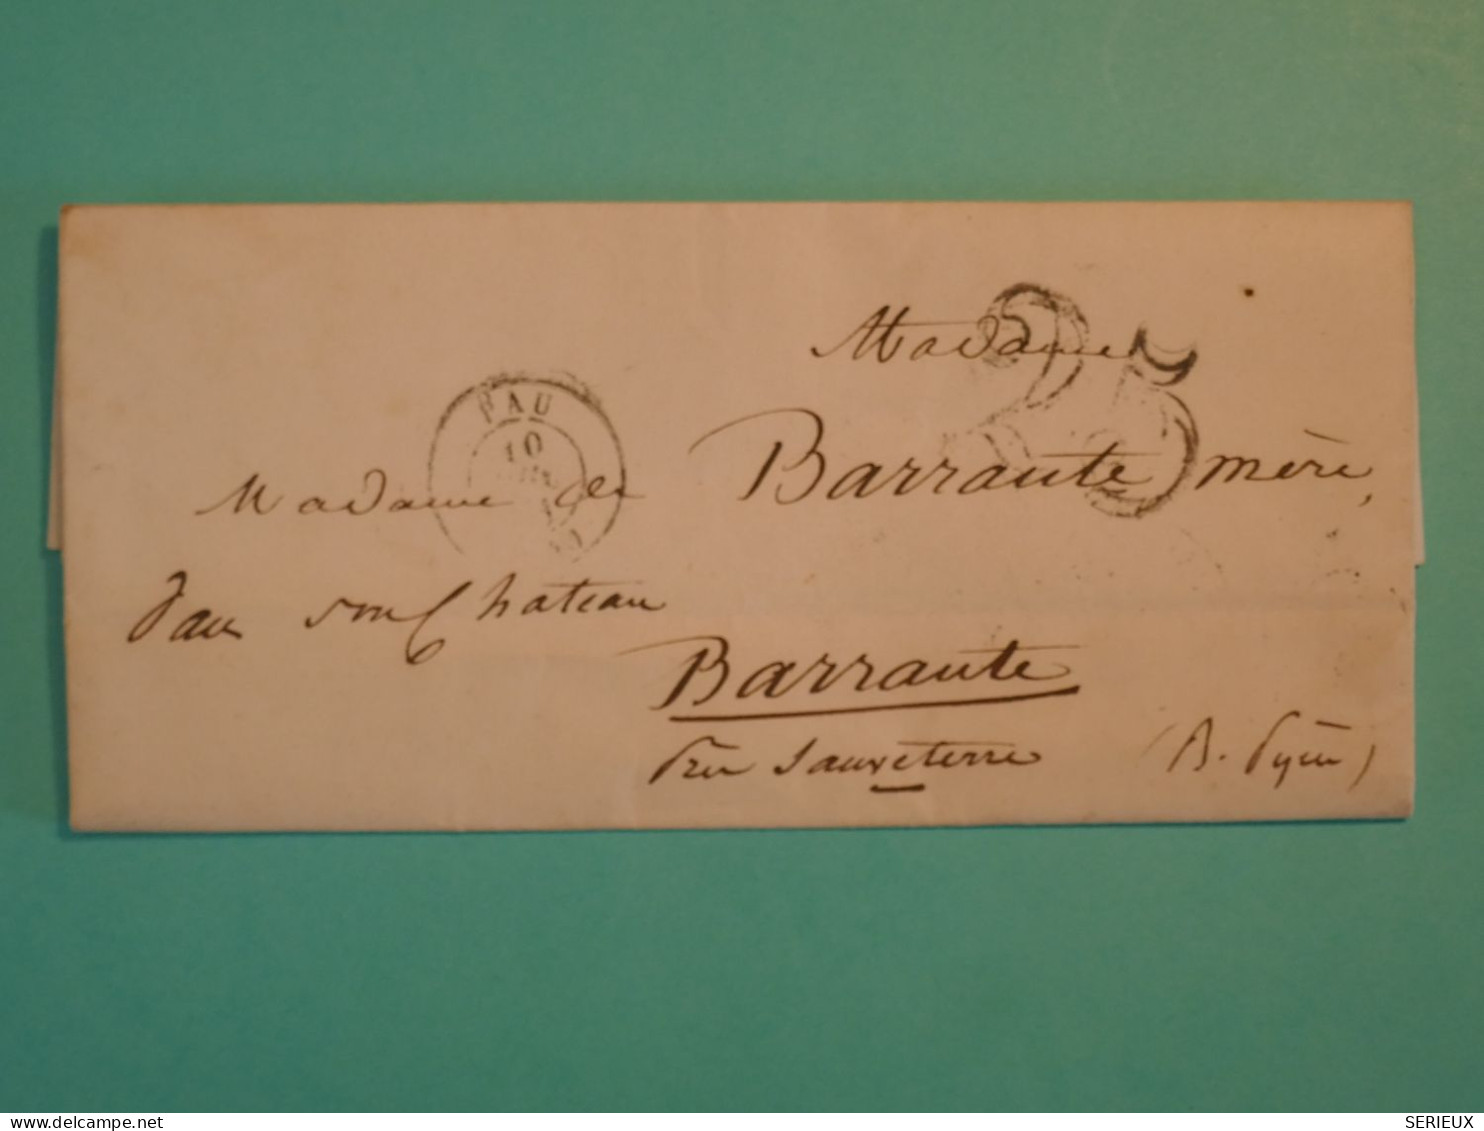 Madame
25
PAU
10
Madame de Barraute mère,
dans son Chateau
Barraute
près Sauveterre (B. Pyrén)
delcampe.net
SERIEUX